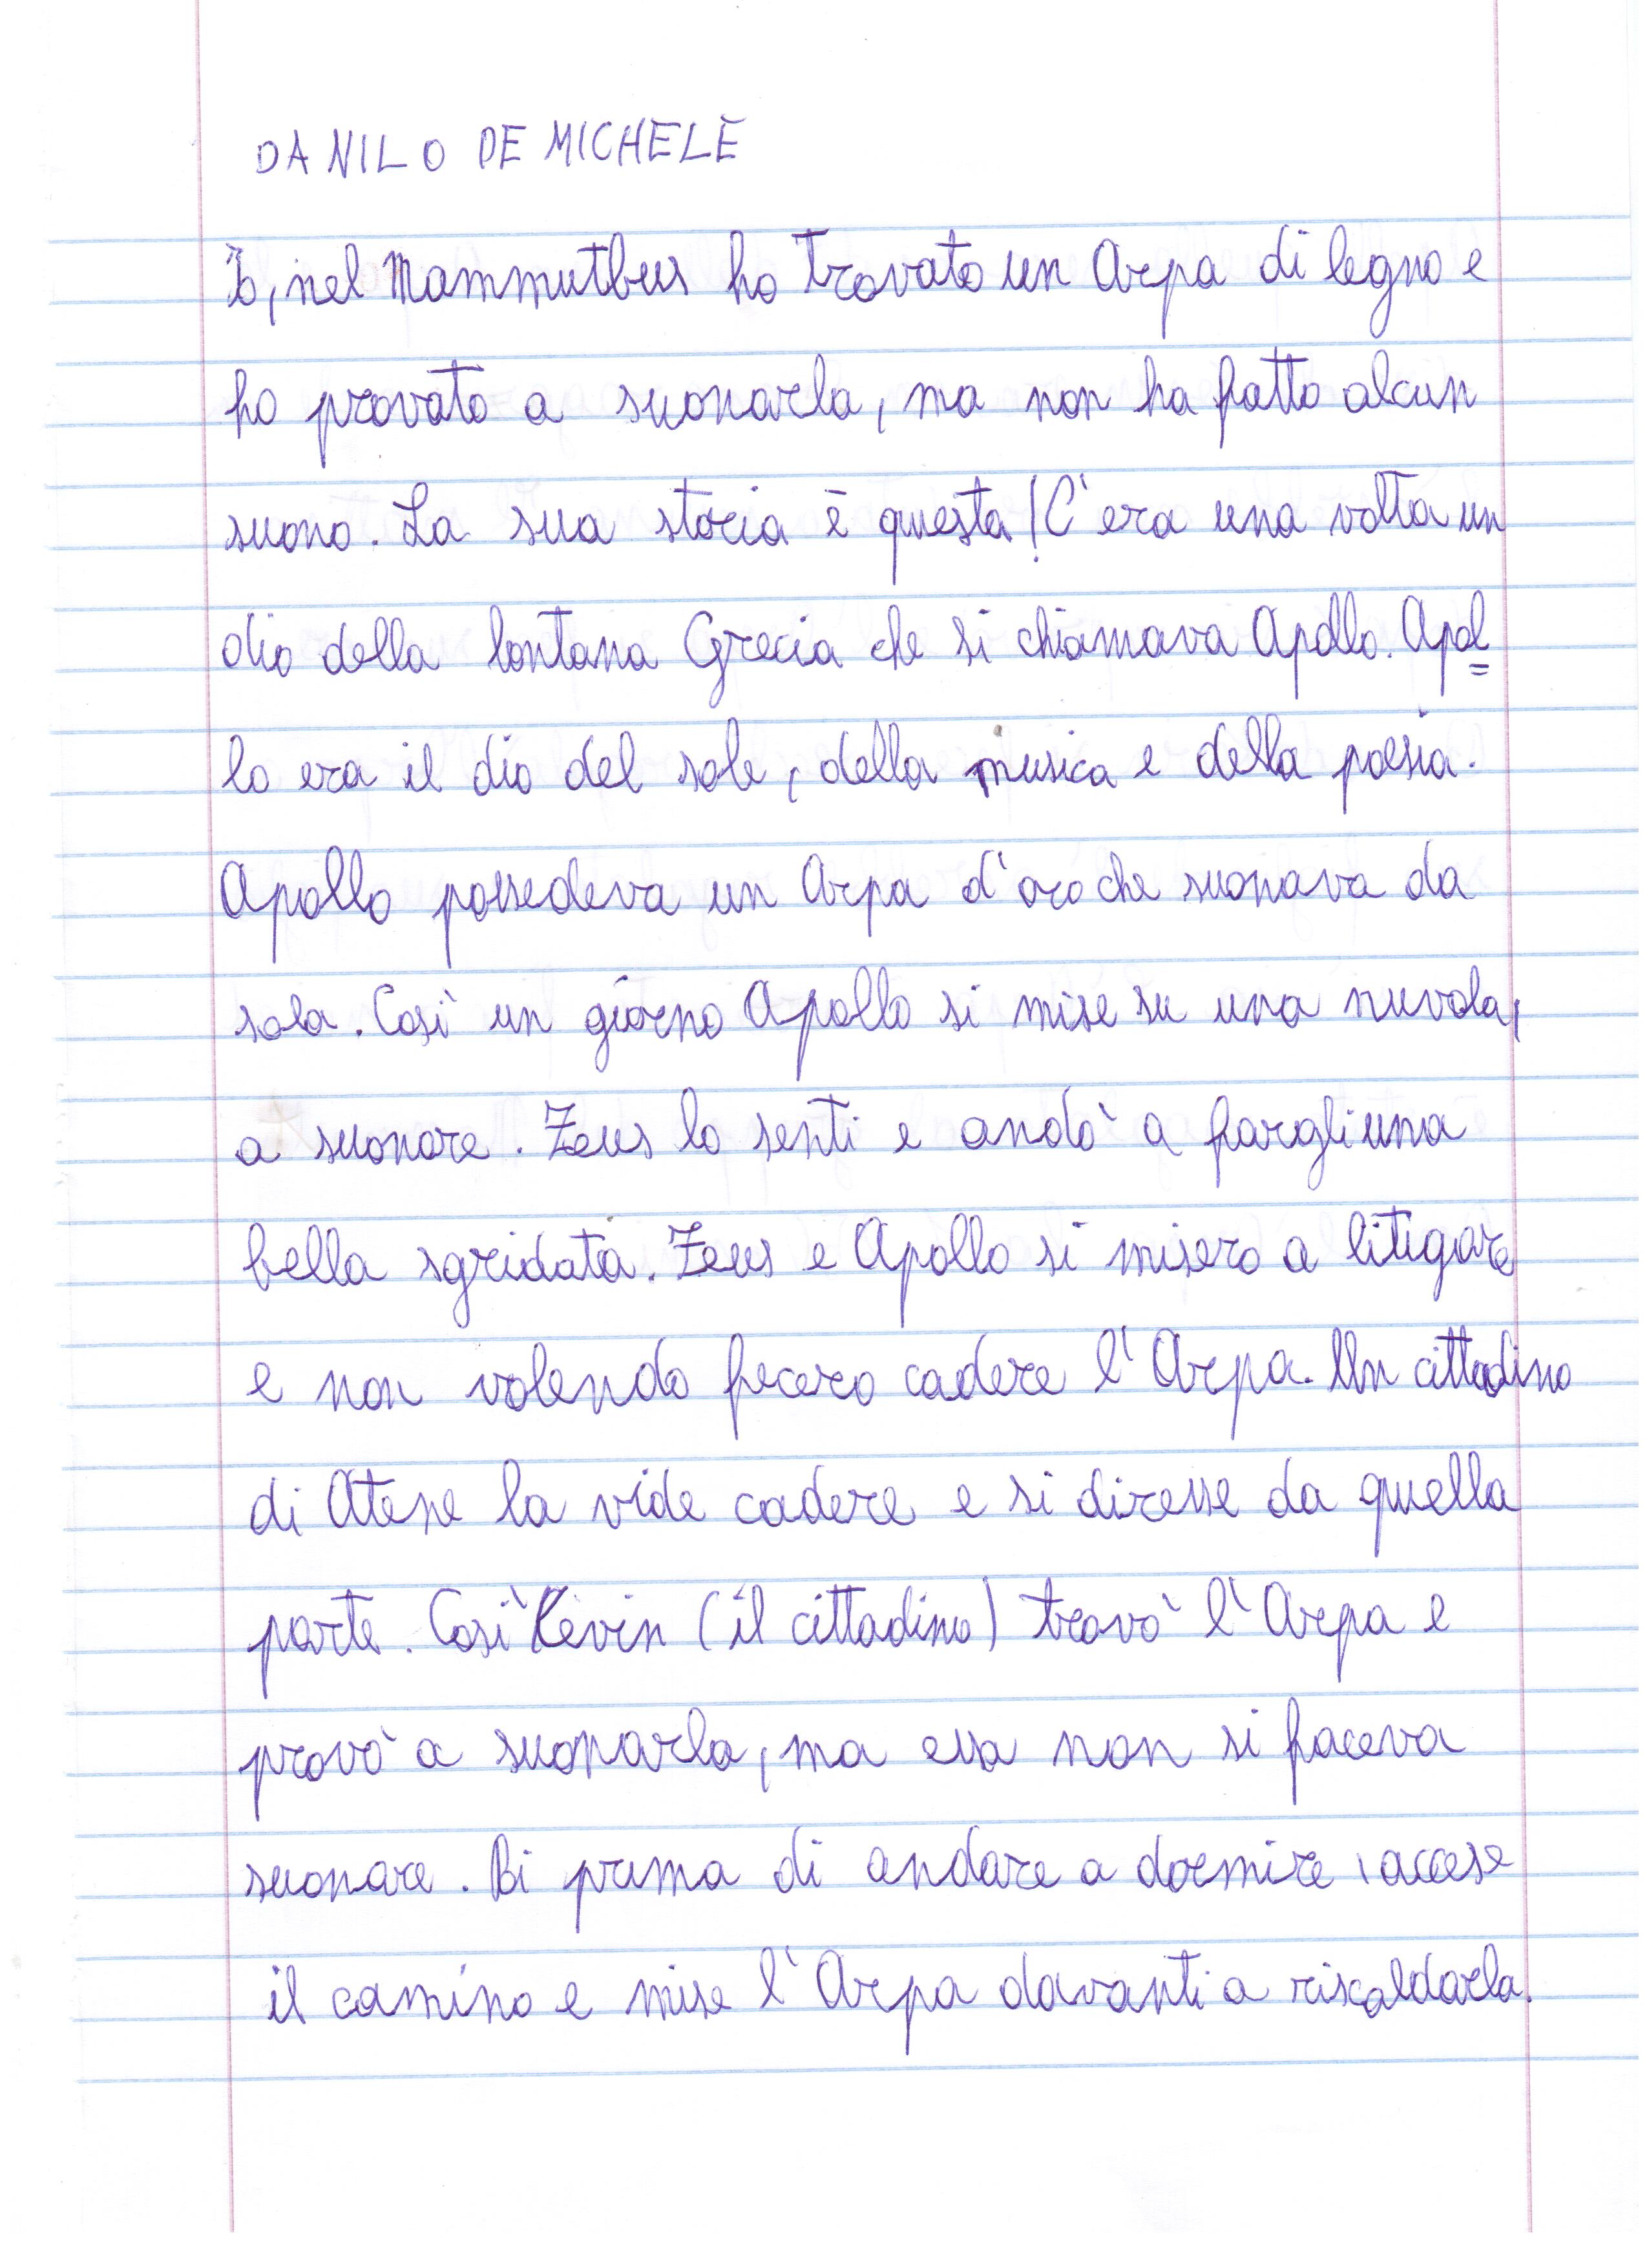 DANILO DE MICHELE
Io, nel Mammutbus ho trovato un Arpa di legno e
ho provato a suonarla, ma non ha fatto alcun
suono. La sua storia è questa! C'era una volta un
dio della lontana Grecia che si chiamava Apollo. Apol=
lo era il dio del sole, della musica e della poesia.
Apollo possedeva un Arpa d'oro che suonava da
sola. Così un giorno Apollo si mise su una nuvola,
a suonare. Zeus lo senti e andò a fargli una
bella sgridata. Zeus e Apollo si misero a litigare
e non volendo fecero cadere l'Arpa. Un cittadino
di Atene la vide cadere e si diresse da quella
parte. Così Kevin (il cittadino) trovò l'Arpa e
provò a suonarla, ma essa non si faceva
suonare. Bi prima di andare a dormire, accese
il camino e mise l'Arpa davanti a riscaldarla.